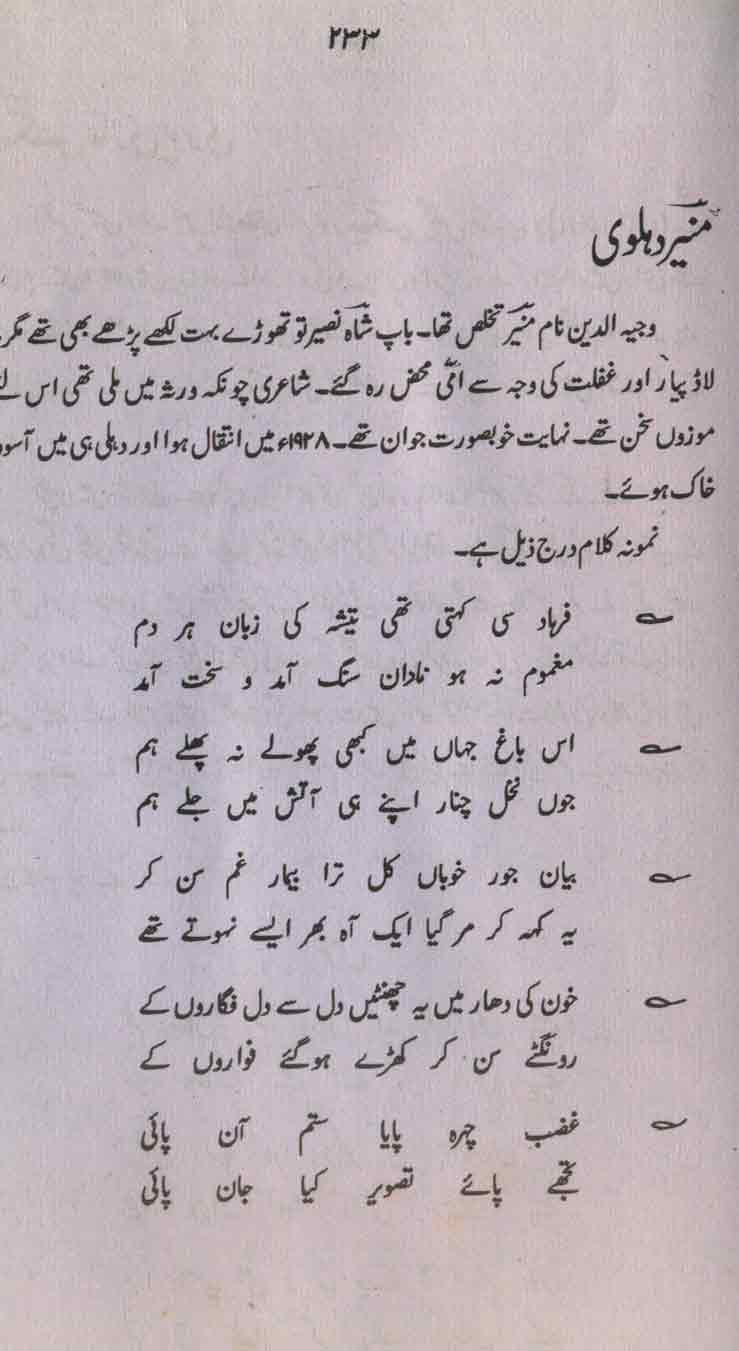 ۲۳۳
منیر دہلوی
وجیہ الدین نام منیر تخلص تھا۔ باپ شاہ نصیر تو تھوڑے بہت لکھے پڑھے بھی تھے مگر
لاڈ پیار اور غفلت کی وجہ سے امّی محض رہ گئے۔ شاعری چونکہ ورثہ میں ملی تھی اس لئے
موزوں سخن تھے۔ نہایت خوبصورت جوان تھے۔ ۱۹۲۸ء میں انتقال ہوا اور دہلی ہی میں آسود
خاک ہوئے۔
نمونہ کلام درج ذیل ہے۔
فرہاد سی کہتی تھی تیشہ کی زبان ہر دم
مغموم نہ ہو نادان سنگ آمد و سخت آمد
اس باغ جہاں میں کبھی پھولے نہ پھلے ہم
جوں نخل چنار اپنے ہی آتش میں جلے ہم
بیان جور خوباں کل ترا بیمار غم سن کر
یہ کہہ کر مر گیا ایک آہ بھر ایسے نہوتے تھے
خون کی دھار میں یہ چھنٹیں دل سے دل فگاروں کے
رونگٹے سن کر کھڑے ہوگئے فواروں کے
غضب چہرہ پایا ستم آن پائی
تجھے پائے تصویر کیا جان پائی